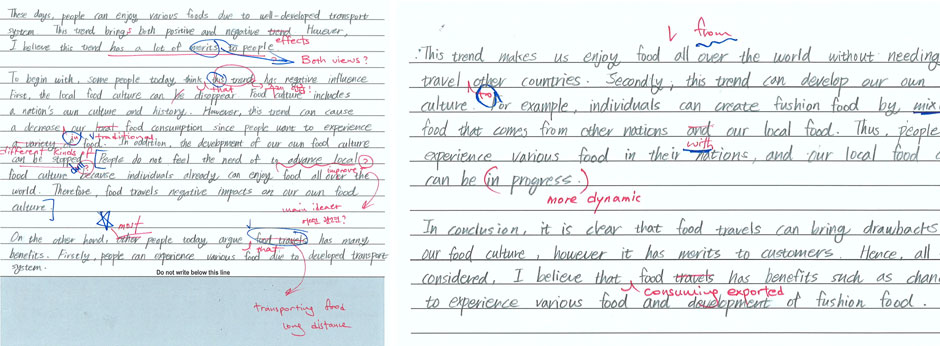 These days, people can enjoy various foods due to well-developed transport
system. This trend brings both positive and negative trend However,
effects
I believe this trend has a lot of merits to people
Both views?
To begin with, some people today think this trend has negative influence
that
First, the local food culture can be disappear. Food culture includes
a nation's own culture and history. However, this trend can cause
a decrease our local food consumption since people want to experience
in traditional
a variety food. In addition, the development of our own food culture
different kinds of
can be stopped. People do not feel the need of advance local
improve
food culture because individuals already can enjoy food all over the
world. Therefore, food travels negative impacts on our own food
culture.
main idea
most
On the other hand, other people today argue food travels has many
that
benefits. Firstly, people can experience various food due to developed transport
system.
Do not write below this line
transporting food
long distance
from
This trend makes us enjoy food all over the world without needing
travel other countries. Secondly, this trend can develop our own
to
culture. For example, individuals can create fushion food by mix
food that comes from other nations and our local food. Thus, people
with
experience various food in their nations, and our local food c
can be in progress.
more dynamic
In conclusion, it is clear that food travels can bring drawbacks
our food culture, however it has merits to customers. Hence, all
considered, I believe that food travels has benefits such as chan
consuming exported
to experience various food and development of fushion food.